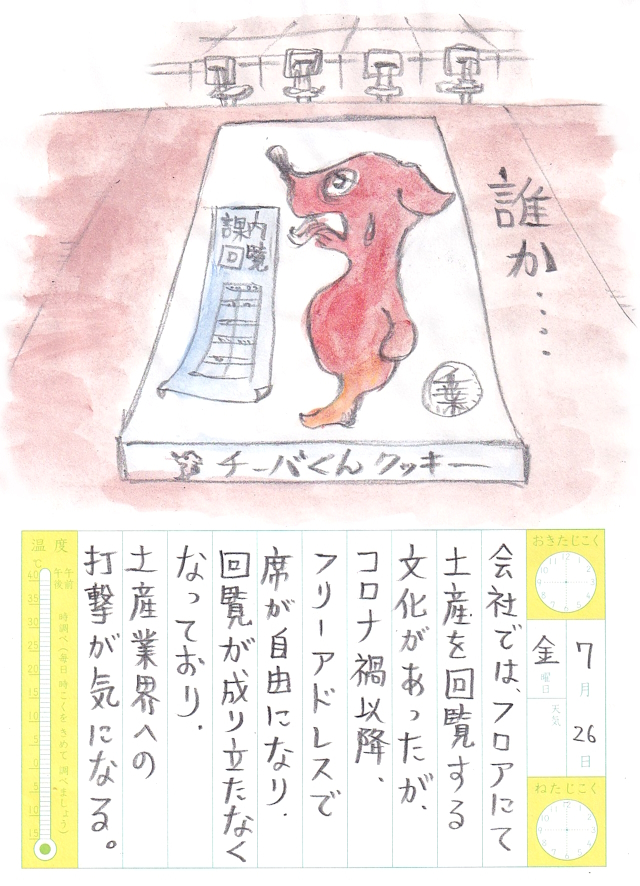 誰か・・・・
課内
回覧
千葉
チーバくんクッキー
おきたじこく
7月26日
金曜日
天気
ねたじこく
会社では、フロアにて
土産を回覧する
文化があったが、
コロナ禍以降、
フリーアドレスで
席が自由になり、
回覧が、成り立たなく
なっており、
土産業界への
打撃が気になる。
温度
℃
午前
午後
時調べ(毎日時こくをきめて調べましょう)
40
35
30
25
20
15
10
5
0
5
10
15